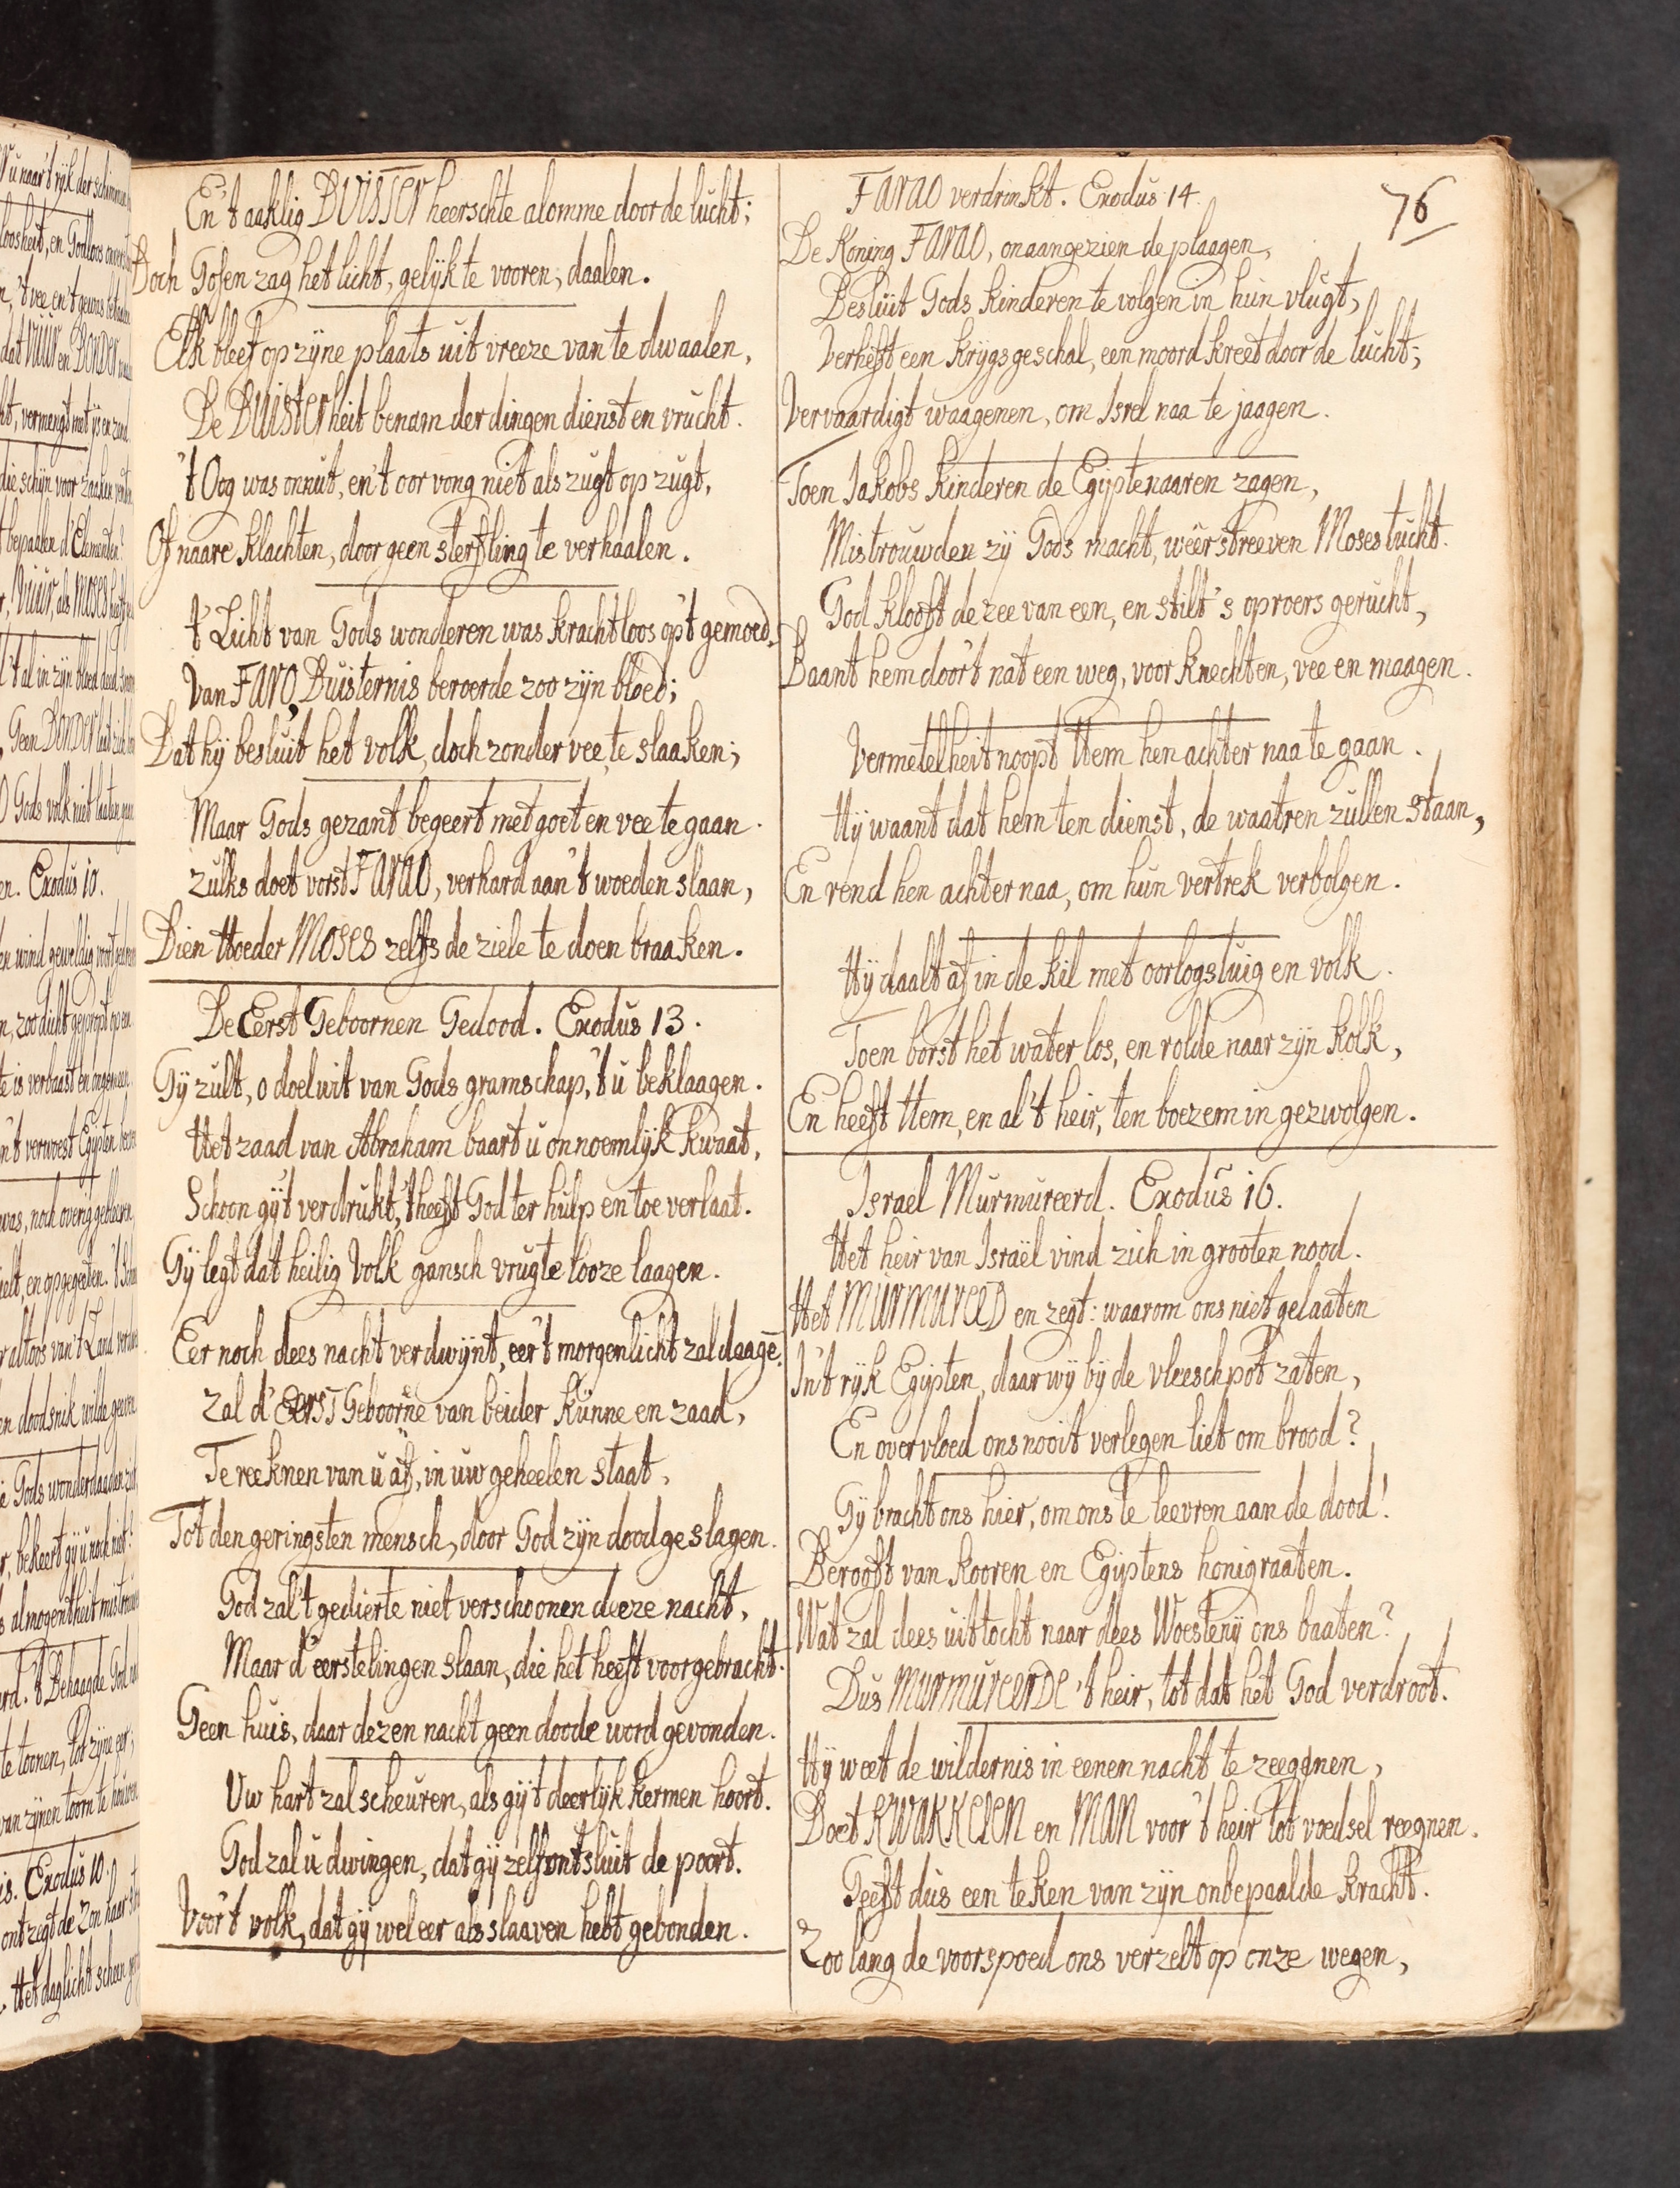 En 't aaklig DUISTER heerschte alomme door de lucht;
Doch Gosen zag het licht, gelijk te vooren, daalen.
Elk bleef op zyne plaats uit vreeze van te dwaalen,
De DUISTERheit benam der dingen dienst en vrucht.
't Oog was onnut, en 't oor vong niet als zugt op zugt,
Of naare klachten, door geen sterfling te verhaalen.
't Licht van Gods wonderen was krachtloos op 't gemoed,
Van FARO, Duisternis beroerde zoo zijn bloed;
Dat hij besluit het volk, doch zonder vee, te slaaken;
Maar Gods gezant begeert met goet en vee te gaan.
zulks doet vorst FARAO, verhard aan 't woeden slaan,
Dien Hoeder MOSES zelfs de ziele te doen braaken.
De Eerst Geboornen Gedood. Exodus 13.
Gij zult, o doelwit van Gods gramschap, 't u beklaagen.
Het zaad van Abraham baart u onnoemlijk kwaat,
Schoon gij 't verdrukt, 't heeft God ter hulp en toe verlaat.
Gij legt dat heilig Volk gansch vrugte looze laagen.
Eer noch dees nacht verdwijnt, eer 't morgenlicht zal daagē.
Zal d' EERST Geboorne van beider kunne en zaad,
Te reeknen van u af, in uw geheelen staat,
Tot den geringsten mensch, door God zijn doodgeslagen.
God zal 't gedierte niet verschoonen deeze nacht,
Maar d' eerstelingen slaan, die het heeft voorgebracht.
Geen huis, daar dezen nacht geen doode word gevonden.
Uw hart zal scheuren, als gij 't deerlijk kermen hoort.
God zal u dwingen, dat gij zelf ontsluit de poort.
Voor 't volk, dat gij wel eer als slaaven hebt gebonden.
FARAO verdrinkt. Exodus 14.
76
De Koning FARAO, onaangezien de plaagen,
Besluit Gods kinderen te volgen in hun vlugt,
Verheft een krijgsgeschal, een moord kreet door de lucht;
Vervaardigt waagenen, om Isrel naa te jaagen.
Toen Jakobs kinderen de Egijptenaaren zagen,
Mistrouwden zij Gods macht, weêrstreeven Moses tucht.
God klooft de zee van een, en stilt 's oproers gerucht,
Baant hem door 't nat een weg, voor knechten, vee en maagen.
Vermetelheit noopt Hem hen achter naa te gaan.
Hij waant dat hem ten dienst, de waatren zullen staan,
En rend hen achter naa, om hun vertrek verbolgen.
Hij daalt af in de kil met oorlogstuig en volk.
Toen borst het water los, en rolde naar zijn kolk,
En heeft Hem, en al 't heir, ten boezem in gezwolgen.
Israel Murmureerd. Exodus 16.
Het heir van Israël vind zich in grooten nood.
Het MURMUREED en zegt: waarom ons niet gelaaten
In 't rijk Egijpten, daar wij bij de vleeschpot zaten,
En overvloed ons nooit verlegen liet om brood?
Gij bracht ons hier, om ons te leevren aan de dood!
Berooft van kooren en Egijptens honigraaten.
Wat zal dees uittocht naar dees Woestenij ons baaten?
Dus MURMUREERDE 't heir, tot dat het God verdroot.
Hij weet de wildernis in eenen nacht te zeegenen,
Doet KWAKKELEN en MAN voor 't heir tot voedsel reegnen.
Geeft dus een teken van zijn onbepaalde kracht.
Zoo lang de voorspoed ons verzelt op onze wegen,